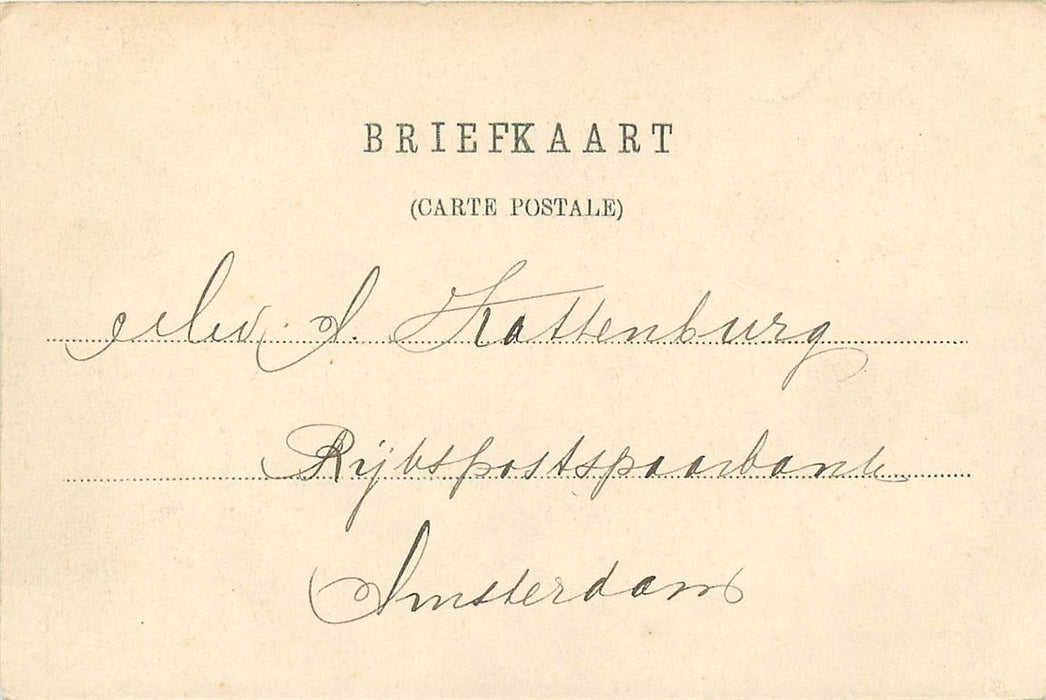 BRIEFKAART
(CARTE POSTALE)
S. Kattenburg
Rijkspostspaarbank
Amsterdam